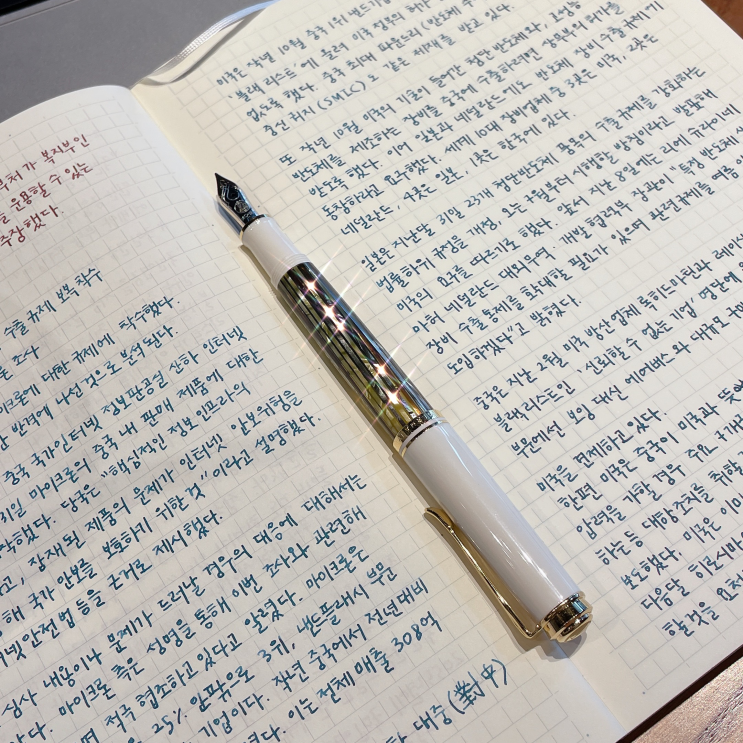 부처가 복지부인
를 운용할 수 있는
주장했다.
수출 규제 보복 착수
론 조사
마이크론에 대한 규제에 착수했다.
반격에 나선 것으로 분석된다.
중국 국가인터넷정보판공실 산하 인터넷
마이크론의 중국 내 판매 제품에 대한
작했다. 당국은 "핵심적인 정보 인프라의
고, 잠재된 제품의 문제가 인터넷 안보위험을
해 국가 안보를 보호하기 위한 것" 이라고 설명했다.
안전법 등을 근거로 제시했다.
심사 내용이나 문제가 드러날 경우의 대응에 대해서는
았다. 마이크론 측은 성명을 통해 이번 조사와 관련해
적극 협조하고 있다고 알렸다. 마이크론은
25% 안팎으로 3위, 낸드플래시 부문
기업이다. 작년 중국에서 전년대비
렸다. 이는 전체 매출 308억
대중(對中)
미국은 작년 10월 중국 1위
'블랙 리스트'에 올려 미국 정부의 허가
없도록 했다. 중국 최대 파운드리(반도체
중신궈지(SMIC)도 같은 제재를 받고 있다.
또 작년 10월 미국의 기술이 들어간 첨단 반도체나, 고성능
반도체를 제조하는 장비를 중국에 수출하려면 상무부의 허가를
받도록 했다. 이어 일본과 네덜란드에도 반도체 장비 수출규제에
동참하라고 요구했다. 세계 10대 장비업체 중 3곳은 미국, 2곳은
네덜란드, 4곳은 일본, 1곳은 한국에 있다.
일본은 지난달 31일 23개 첨단반도체 품목의 수출 규제를 강화하는
법률하위 규정을 개정, 오는 7월부터 시행할 방침이라고 발표해
미국의 요구를 따르기로 했다. 앞서 지난 8일에는 리에 슈라이네
마허 네덜란드 대외무역·개발협력부 장관이 "특정 반도체 생산
장비 수출통제를 확대할 필요가 있으며 관련규제를 여름 이
도입하겠다"고 밝혔다.
중국은 지난 2월 미국 방산업체 록히드마틴과 레이
블랙리스트인 '신뢰할 수 없는 기업' 명단에
부문에선 보잉 대신 에어버스와 대규모
미국을 견제하고 있다.
한편 미국은 중국이 미국과 뜻
압력을 가할 경우 주요 7개
하는 등 대항 조치를 취할
보도했다. 미국은 이미
다음달 히로시마
할 것을 요